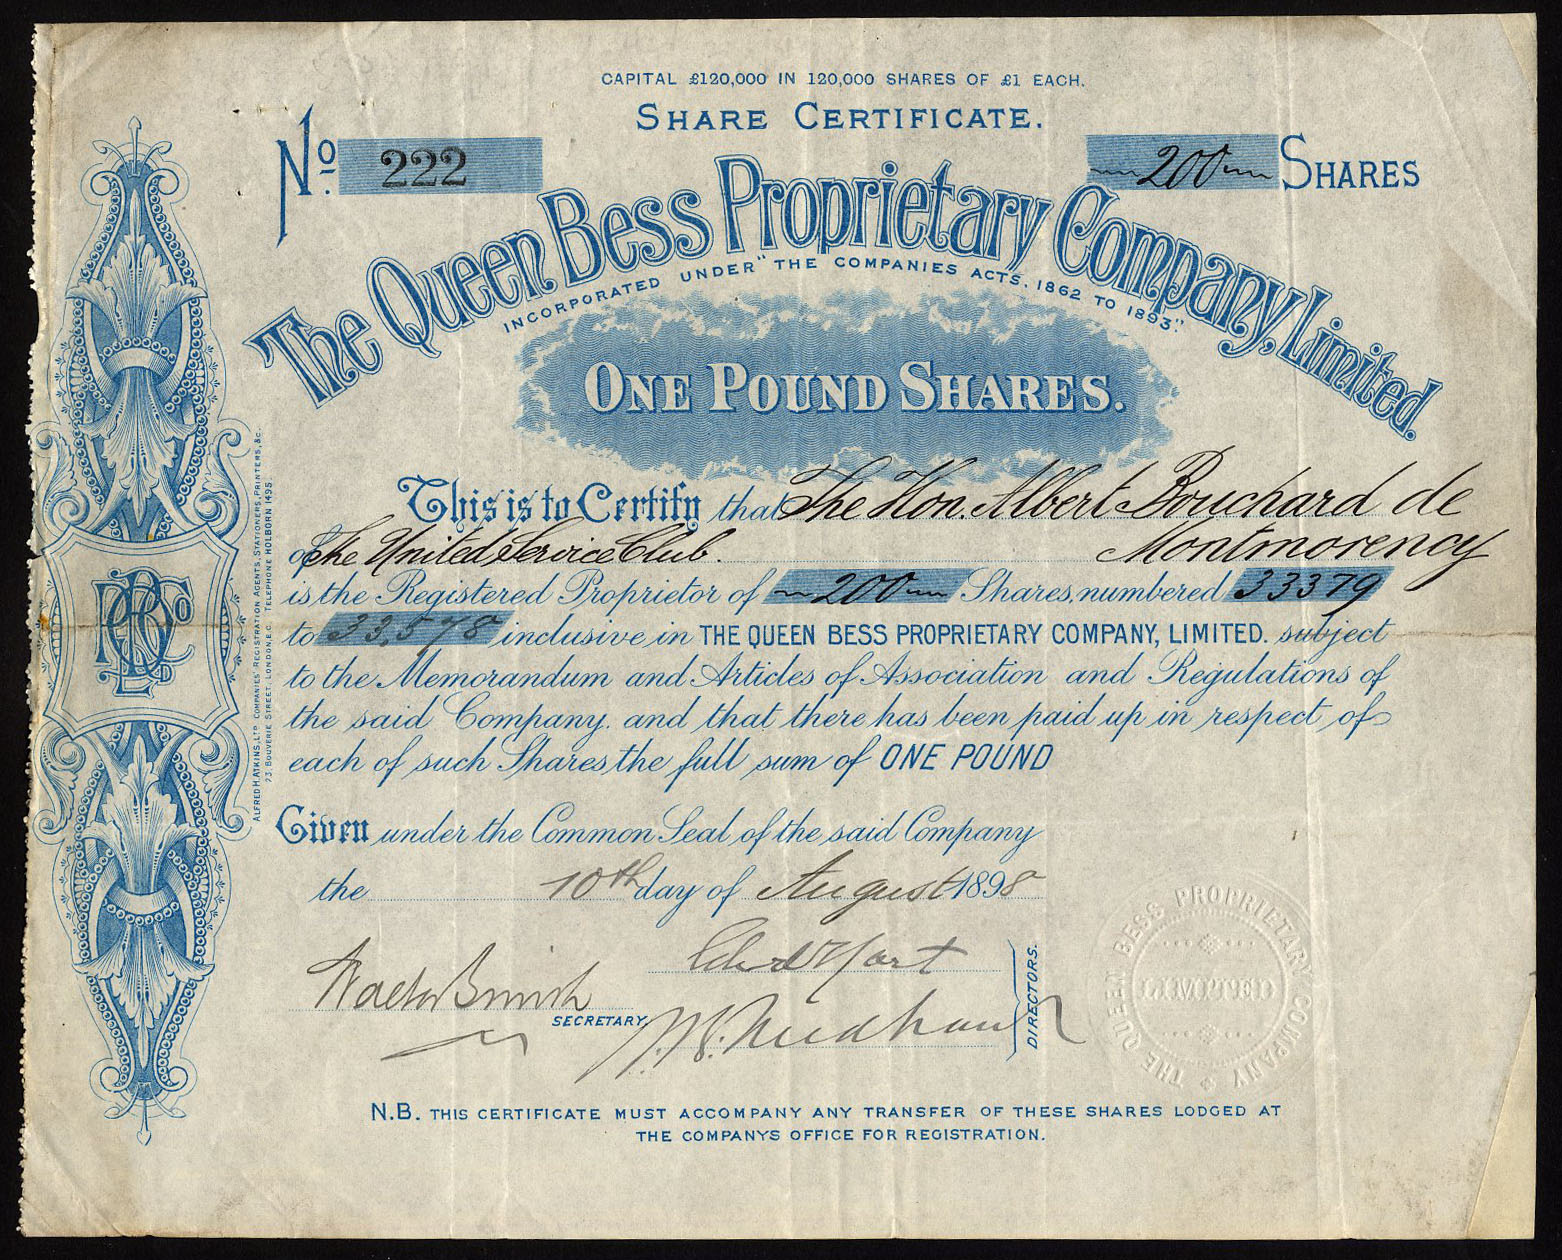 CAPITAL £120,000 IN 120,000 SHARES OF £1 EACH.
SHARE CERTIFICATE.
No. 222
200 SHARES
The Queen Bess Proprietary Company, Limited.
INCORPORATED UNDER "THE COMPANIES ACTS. 1862 TO 1893".
ONE POUND SHARES.
This is to Certify that The Hon. Albert Bouchard de
of The United Service Club. Montmorency
is the Registered Proprietor of 200 Shares, numbered 33379
to 33,578 inclusive in THE QUEEN BESS PROPRIETARY COMPANY, LIMITED. subject
to the Memorandum and Articles of Association and Regulations of
the said Company. and that there has been paid up in respect of
each of such Shares, the full sum of ONE POUND
Given under the Common Seal of the said Company
the 10th day of August 1898
Walter
SECRETARY.
Hart
DIRECTORS.
THE QUEEN BESS PROPRIETARY COMPANY
LIMITED
N.B. THIS CERTIFICATE MUST ACCOMPANY ANY TRANSFER OF THESE SHARES LODGED AT
THE COMPANYS OFFICE FOR REGISTRATION.
ALFRED H. ATKINS, LTD COMPANIES' REGISTRATION AGENTS, STATIONERS, PRINTERS, &c.
73, BOUVERIE STREET, LONDON, E.C. TELEPHONE HOLBORN 1495